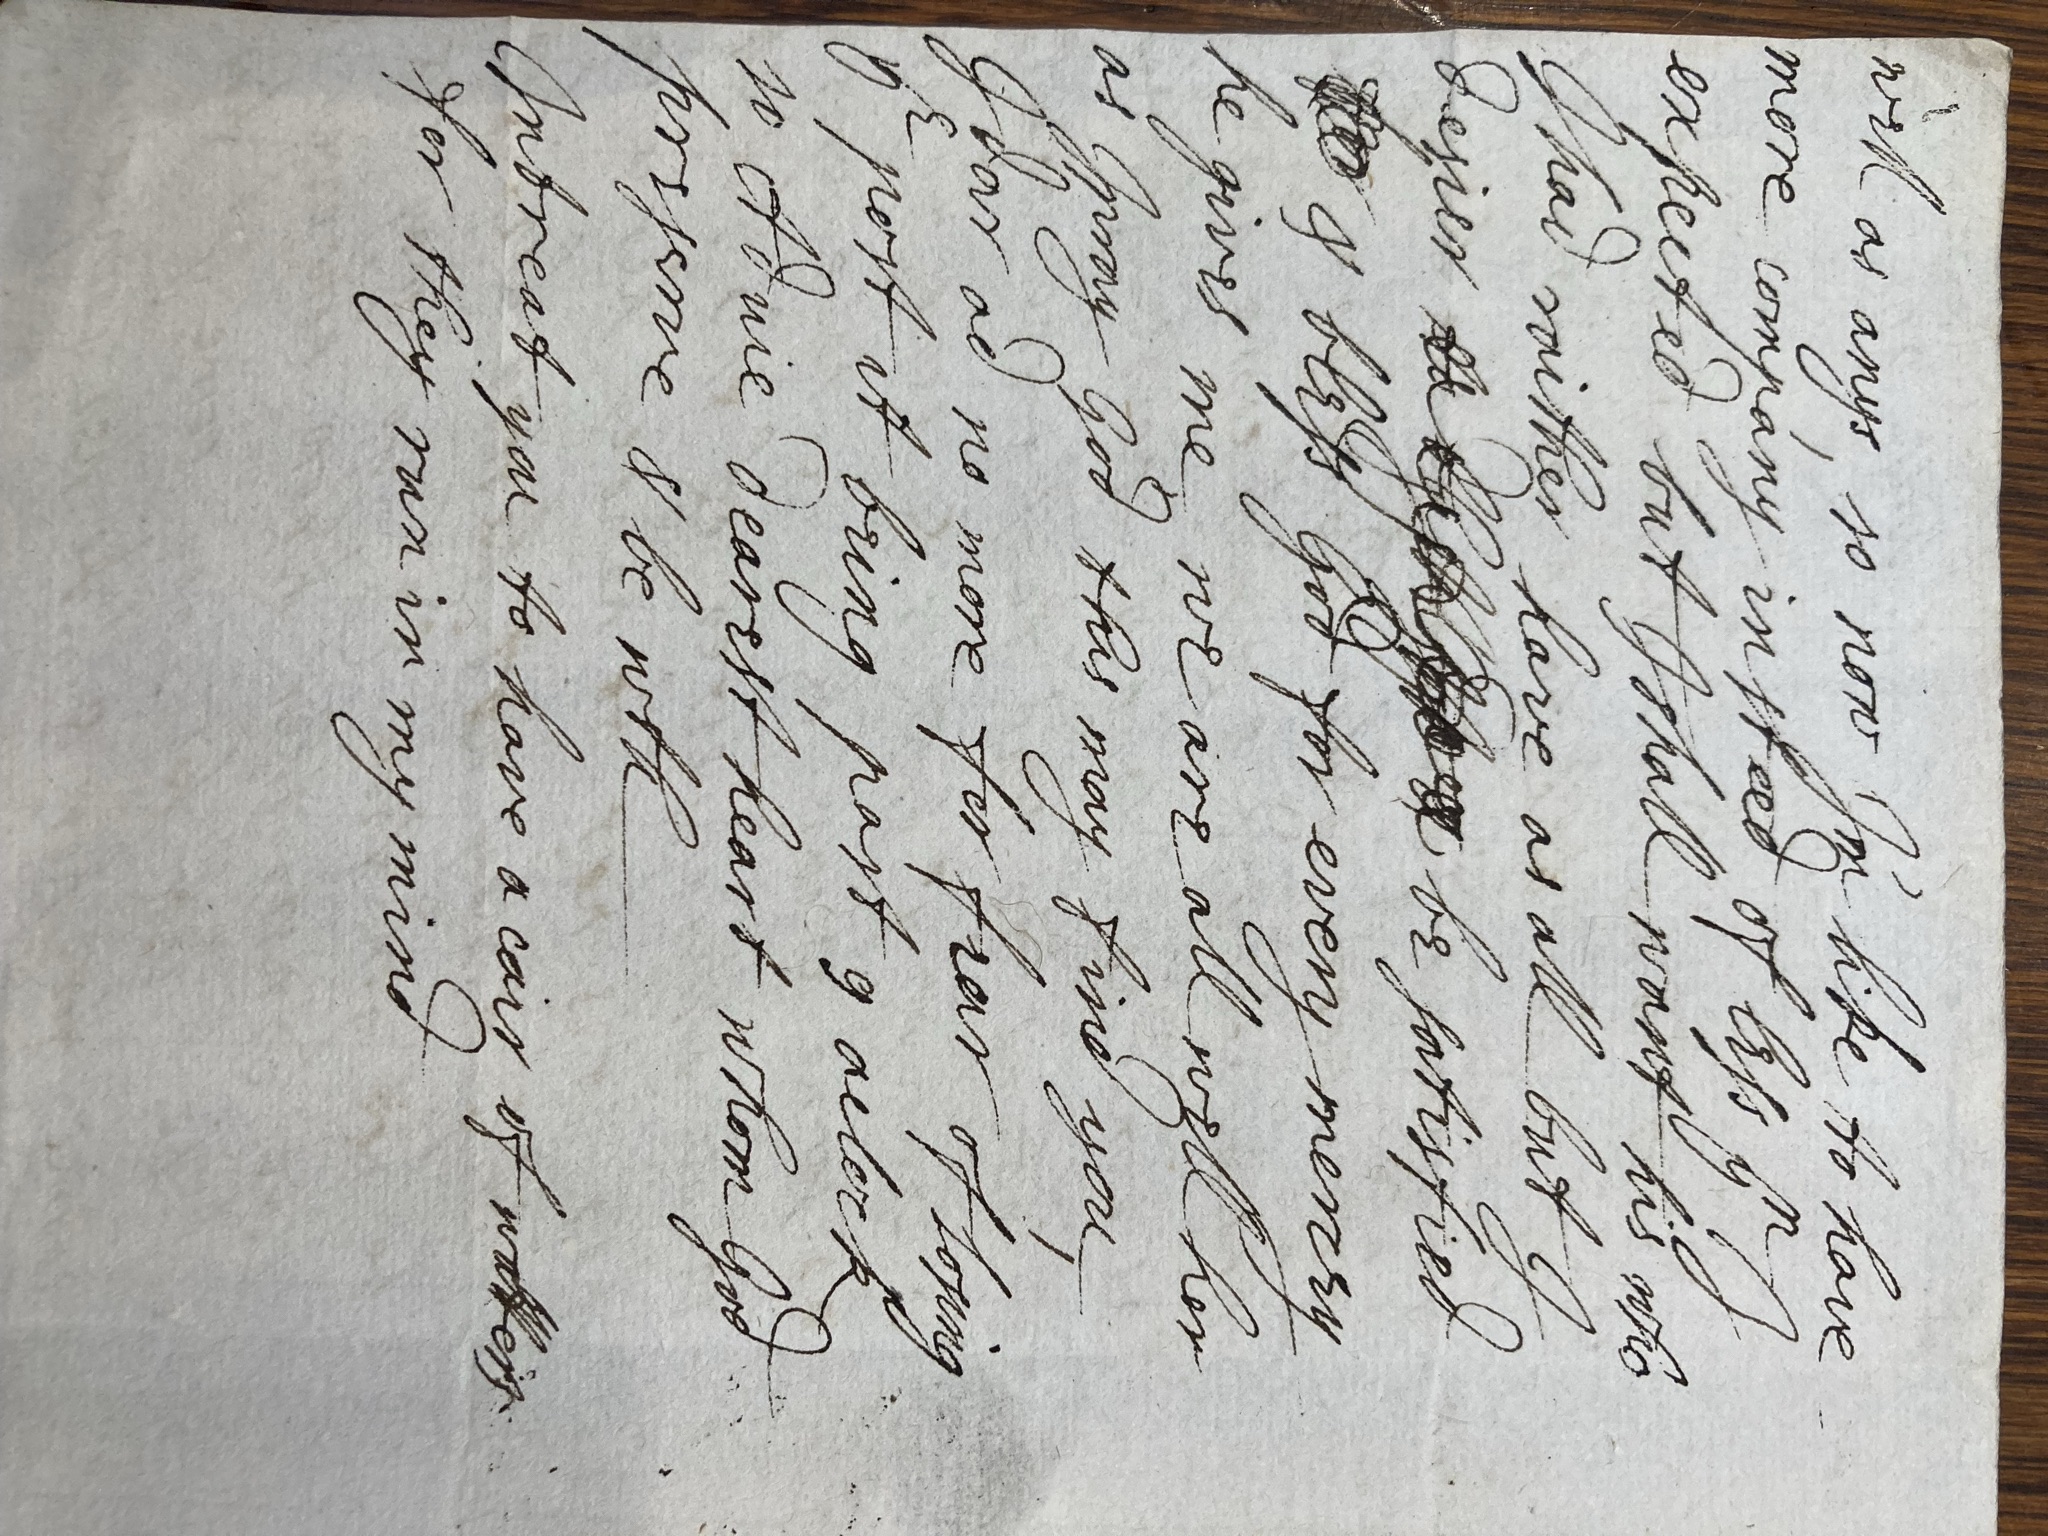 well as anys, so now I'm like to have
more company insteed of less yn I
expected but I shall want his who
I had raither have as all but I
desier be satisfied
& bless God for every mercey
he gives me, we are all well her
as I pray God this may find you,
I dar ad no more for fear of losing
ye post it being past 9 aclock
so Aduie dearest heart whom God
preserve & be wth
Intreat you to have a cair of watters
for they run in my mind